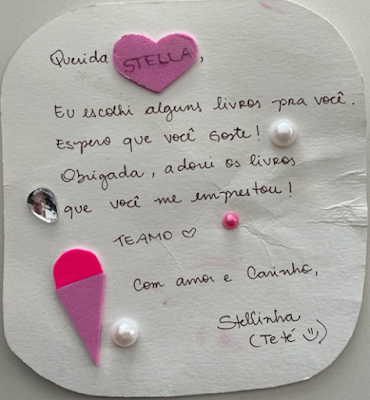 Querida STELLA,
Eu escolhi alguns livros pra você.
Espero que você goste!
Obrigada, adorei os livros
que você me emprestou!
TEAMO ♡
Com amor e Carinho,
Stellinha
(Teté ☺)